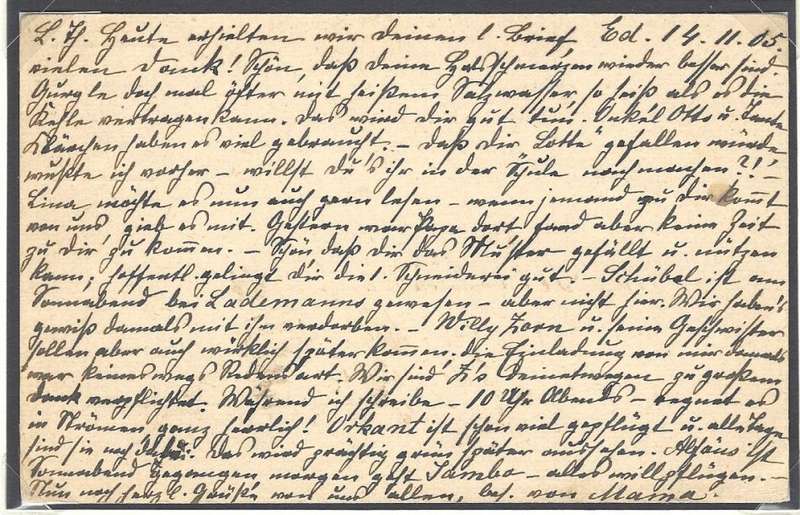 L. Th. Heute erhielten wir deinen l. Brief Ed. 14.11.05.
vielen Dank! Schön, daß deine Halsschmerzen wieder besser sind.
Gurgle doch mal öfter mit heißem Salzwasser, so heiß als es die
Kehle vertragen kann. Das wird dir gut tun. Onkel Otto u. Tante
Klärchen haben es viel gebraucht. – Daß dir „Lotte“ gefallen würde
wußte ich vorher – willst du's ihr in der Schule nachmachen?! –
Lina möchte es nun auch gern lesen – wenn jemand zu Dir kommt
von uns gieb es mit. Gestern war Papa dort fand aber keine Zeit
zu dir zu kommen. – Schön daß dir das Muster gefällt u. nützen
kann; hoffentl. gelingt dir die l. Schneiderei gut. – Schübel ist am
Sonnabend bei Lademanns gewesen – aber nicht hier. Wir haben's
gewiß damals mit ihm verdorben. – Willy Zorn u. seine Geschwister
sollen aber auch wirklich später kommen. Die Einladung von mir damals
war keineswegs Redensart. Wir sind Z's deinetwegen zu großem
Dank verpflichtet. Während ich schreibe – 10 Uhr Abends – regnet es
in Strömen ganz herrlich! Orkant ist schon viel gepflügt u. alle Tage
sind sie noch Das wird prächtig grün später aussehen. Alfons ist
Sonnabend gegangen morgen geht Jambo – alles will pflügen. –
Nun noch herzl. Grüße von uns allen, bes. von Mama.